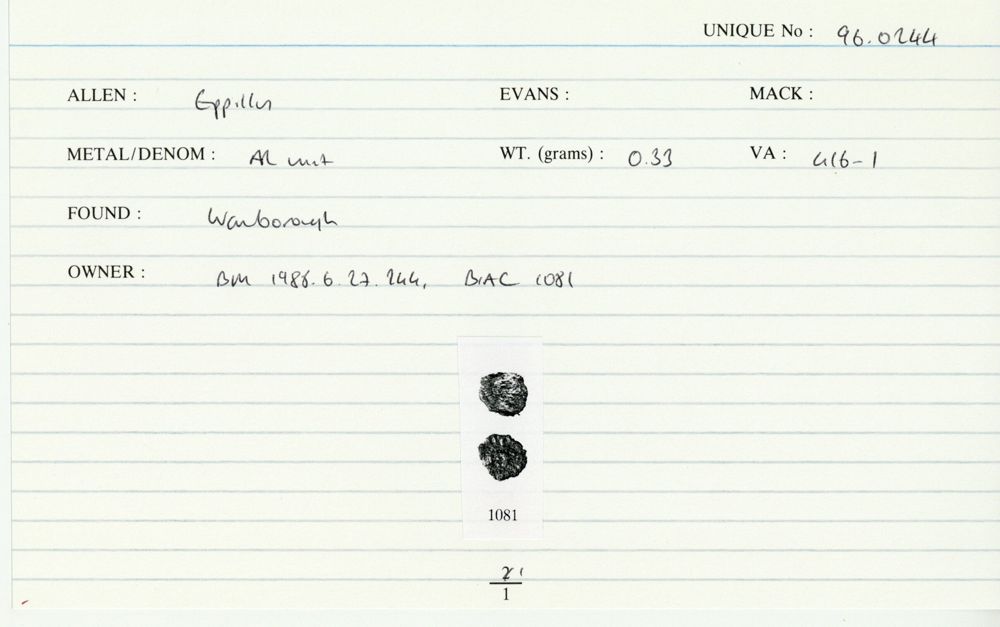 UNIQUE No : 96.0244
ALLEN : Eppillus EVANS : MACK :
METAL/DENOM : AR unit WT. (grams) : 0.33 VA : 416-1
FOUND : Wanborough
OWNER : BM 1986.6.27.244, BIAC 1081
1081
1